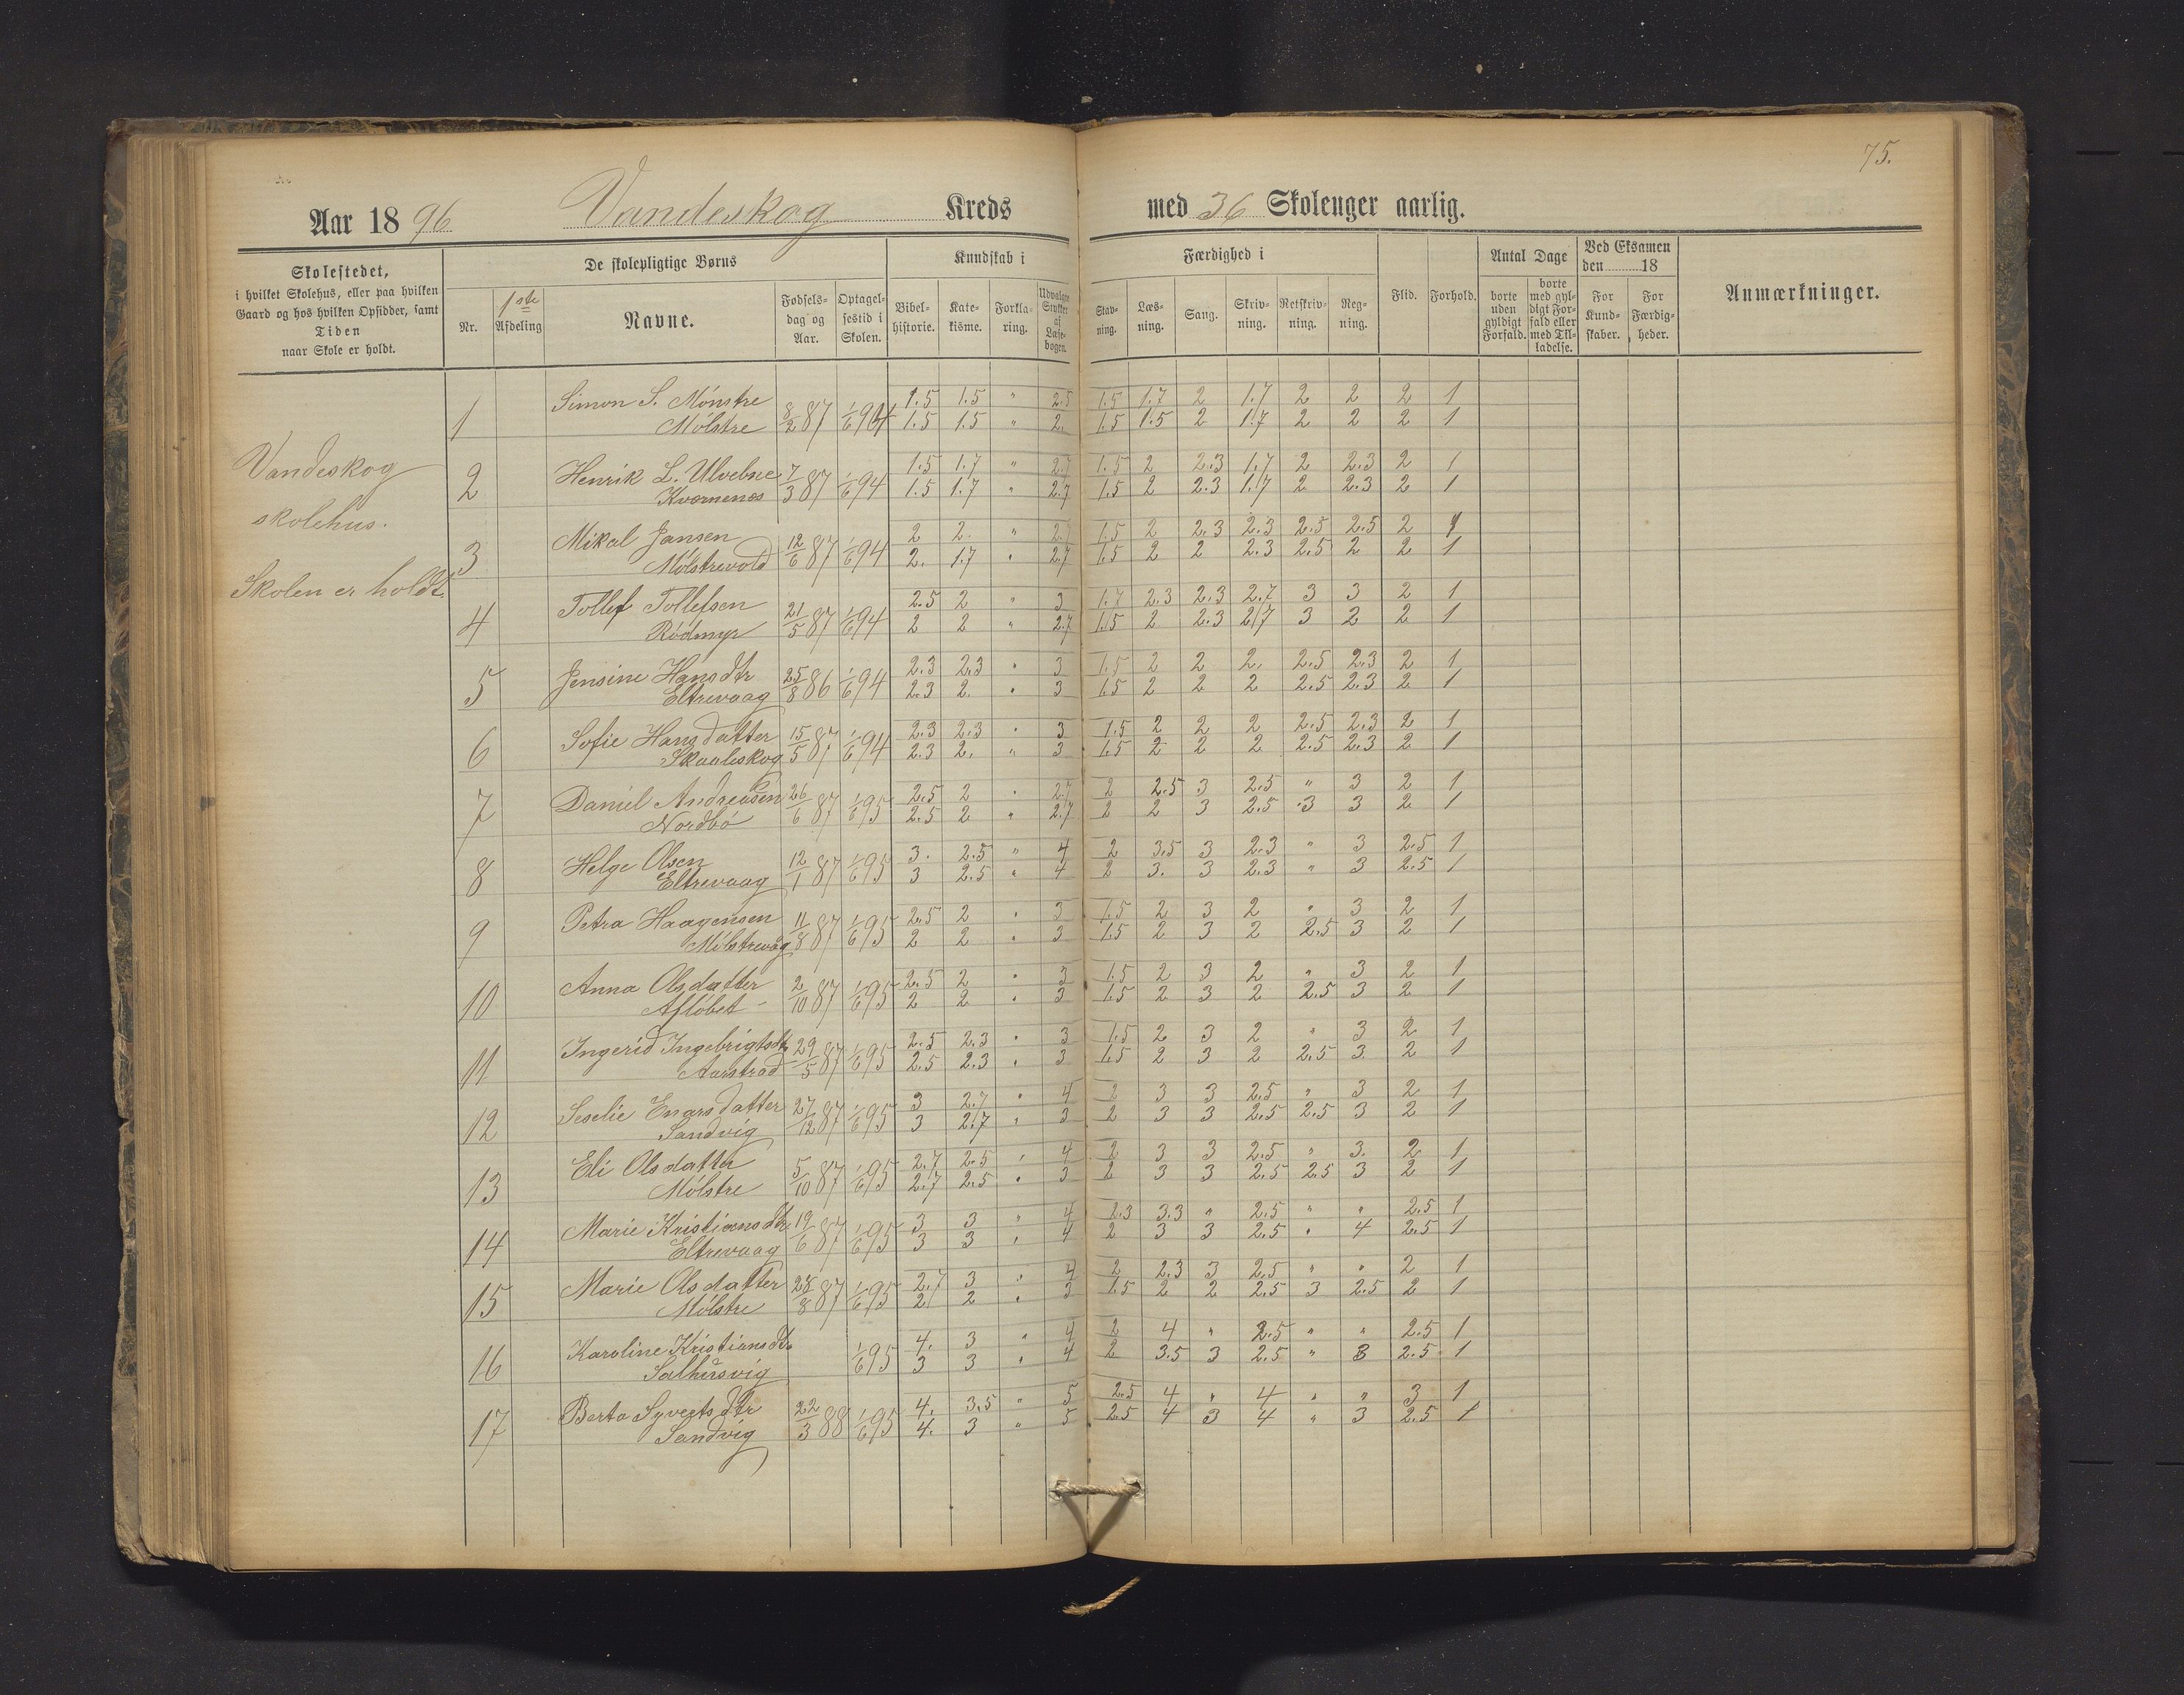 75.
Aar 1896 Vandeskog Kreds med 36 Skoleuger aarlig.
Skolestedet,
i hvilket Skolehus, eller paa hvilken
Gaard og hos hvilken Opsidder, samt
Tiden
naar Skole er holdt.
De skolepligtige Børns
Nr.
1ste
Afdeling
Navne.
Fødsels-
dag og
Aar.
Optagel-
sestid i
Skolen.
Kundskab i
Bibel-
historie.
Kate-
kisme.
Forkla-
ring.
Udvalgte
Stykker
af
Læse-
bogen.
Færdighed i
Stav-
ning.
Læs-
ning.
Sang.
Skriv-
ning.
Retskriv-
ning.
Reg-
ning.
Flid.
Forhold.
Antal Dage
borte
uden
gyldigt
Forfald.
borte
med gyl-
digt For-
fald eller
med Til-
ladelse.
Ved Eksamen
den 18
For
Kund-
skaber.
For
Færdig-
heder.
Anmærkninger.
Vandeskog
skolehus.
Skolen er holdt.
1 Simon S. Mønstre 8/2 87 1/6 94 1.5 1.5 " 2.5 1.5 1.7 2 1.7 2 2 2 1
Mølstre 1.5 1.5 " 2. 1.5 1.5 2 1.7 2 2 2 1
2 Henrik L. Ulvebne 7/3 87 1/6 94 1.5 1.7 " 2.7 1.5 2 2.3 1.7 2 2.3 2 1
Kvornenes 1.5 1.7 " 2.7 1.5 2 2.3 1.7 2 2.3 2 1
3 Mikal Jansen 12/6 87 1/6 94 2 2 " 2.7 1.5 2 2.3 2.3 2.5 2.5 2 1
Mølstrevold 2. 1.7 " 2.7 1.5 2 2 2.3 2.5 2 2 1
4 Tollef Tollefsen 21/5 87 1/6 94 2.5 2 " 3 1.7 2.3 2.3 2.7 3 3 2 1
Rødmyr 2 2 " 2.7 1.5 2 2.3 2.7 3 2 2 1
5 Jensine Hansdtr 25/8 86 1/6 94 2.3 2.3 " 3 1.5 2 2 2. 2.5 2.3 2 1
Eltrevaag 2.3 2. " 3 1.5 2 2 2 2.5 2.3 2 1
6 Sofie Hansdatter 15/5 87 1/6 94 2.3 2.3 " 3 1.5 2 2 2 2.5 2.3 2 1
Skaaleskog 2.3 2. " 3 1.5 2 2 2 2.5 2.3 2 1
7 Daniel Andreasen 26/6 87 1/6 95 2.5 2 " 2.7 2 2.5 3 2.5 " 3 2 1
Nordbø 2.5 2 " 2.7 2 2 3 2.5 3 3 2 1
8 Helge Olsen 12/1 87 1/6 95 3. 2.5 " 4 2 3.5 3 2.3 " 3 2.5 1
Eltrevaag 3 2.5 " 4 2 3. 3 2.3 " 3 2.5 1
9 Petra Haagensen 11/8 87 1/6 95 2.5 2 " 3 1.5 2 3 2 " 3 2 1
Mølstrevåg 2 2 " 3 1.5 2 3 2 2.5 3 2 1
10 Anna Olsdatter 2/10 87 1/6 95 2.5 2 " 3 1.5 2 3 2 " 3 2 1
Afløbet 2 2 " 3 1.5 2 3 2 2.5 3 2 1
11 Ingerid Ingebrigtsdtr 29/5 87 1/6 95 2.5 2.3 " 3 1.5 2 3 2 " 3 2 1
Aarstrad 2.5 2.3 " 3 1.5 2 3 2 2.5 3. 2 1
12 Seselie Enarsdatter 27/12 87 1/6 95 3 2.7 " 4 2 3 3 2.5 " 3 2 1
Sandvig 3 2.7 " 3 2 3 3 2.5 2.5 3 2 1
13 Eli Olsdatter 5/10 87 1/6 95 2.7 2.5 " 4 2 3 3 2.5 " 3. 2. 1
Mølstre 2.7 2.5 " 3 2 3 3 2.5 2.5 3 2 1
14 Marie Kristiansdtr 19/6 87 1/6 95 3 3 " 4 2.3 3.3 " 2.5 " " 2.5 1
Eltrevaag 3 3 " 4 2 3 3 2.5 " 4 2.5 1
15 Marie Olsdatter 28/8 87 1/6 95 2.7 3 " 4 2 2.3 3 2.5 " " 2 1
Mølstre 2 2 " 3 1.5 2 2 2.5 3 2.5 2 1
16 Karoline Kristiansdtr 1/6 95 4. 3 " 4 2 4 " 2.5 " " 2.5 1
Salhusvig 3 3 " 4 2 3.5 3 2.5 " 3 2.5 1
17 Berta Syvertsdtr 22/3 88 1/6 95 4. 3.5 " 5 2.5 4 " 4 " " 3 1
Sandvig 4. 3 " 5 2.5 4 3 4 " 3 2.5 1